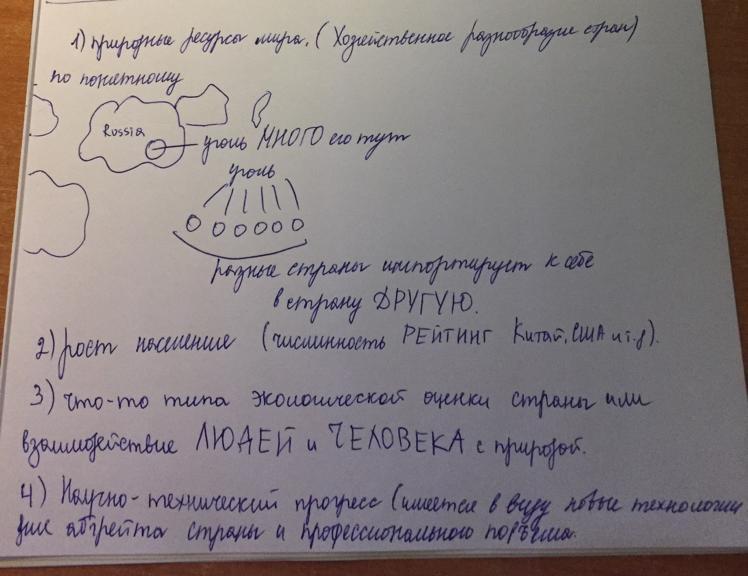 1) природные ресурсы мира. (Хозяйственное разнообразие стран)
по понятному
Russia
уголь МНОГО его тут
уголь
разные страны импортирует к себе
в страну ДРУГУЮ.
2) рост население (численность РЕЙТИНГ Китай, США и т.д).
3) что-то типа экологической оценки страны или
взаимодействие ЛЮДЕЙ и ЧЕЛОВЕКА с природой.
4) Научно-технический прогресс (имеется в виду новые технологии
для абгрейта страны и профессионального подъёма.